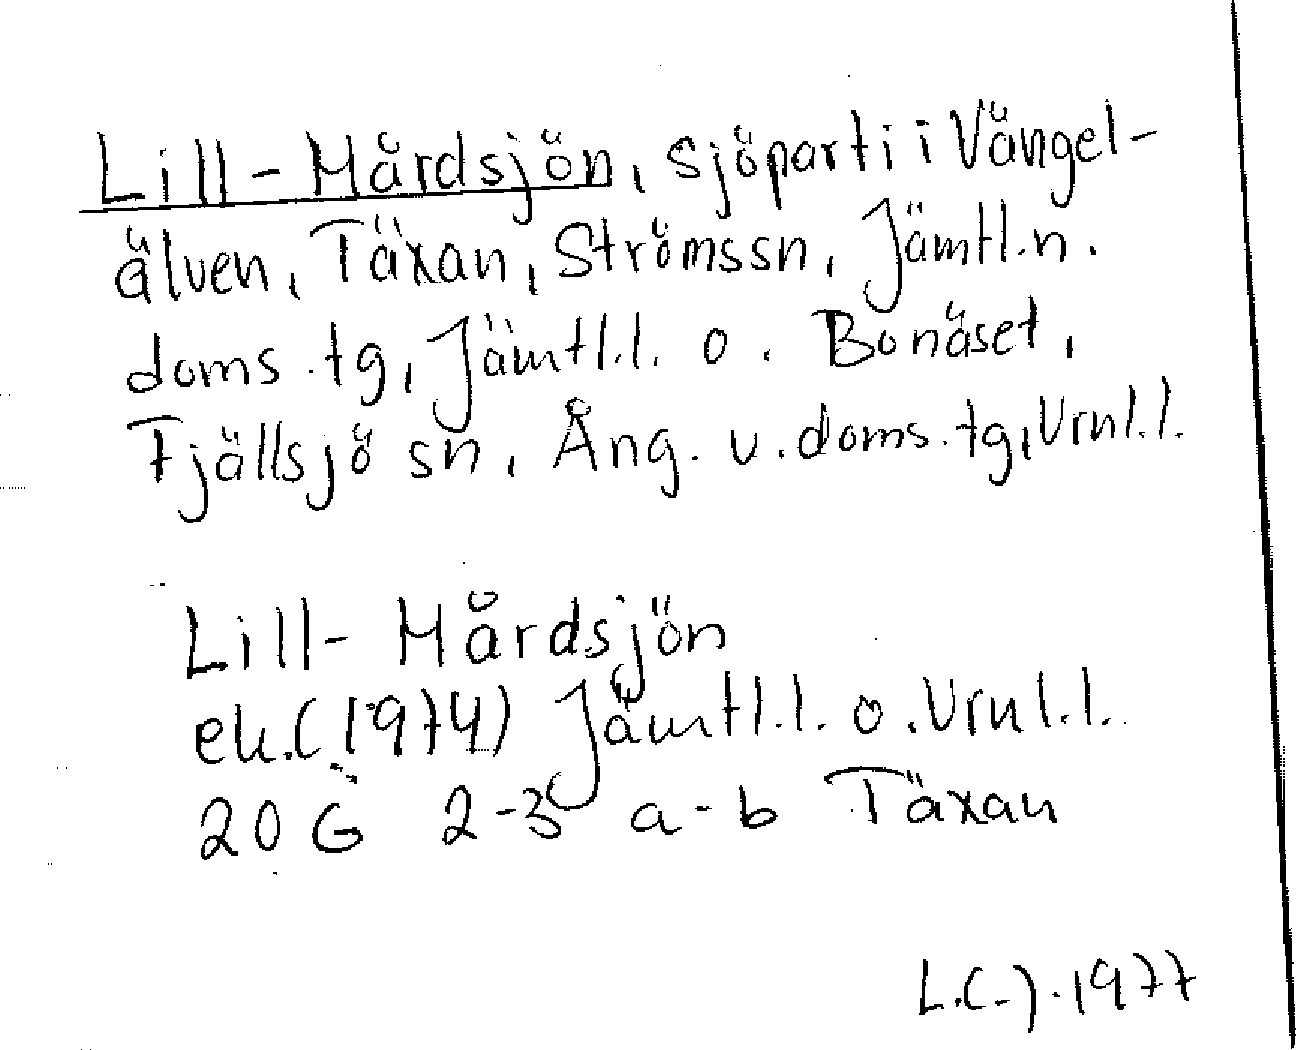 Lill-Mårdsjön, sjöparti i Vängel-
älven, Täxan, Ströms sn, Jämtl.n.
doms.tg, Jämtl.l. o. Bonäset,
Fjällsjö sn, Ång. v. doms.tg, Vrnl.l.
Lill-Mårdsjön
ek.(1974) Jämtl.l. o. Vrnl.l.
20 G 2-3 a-b Täxan
L.C-J. 1977